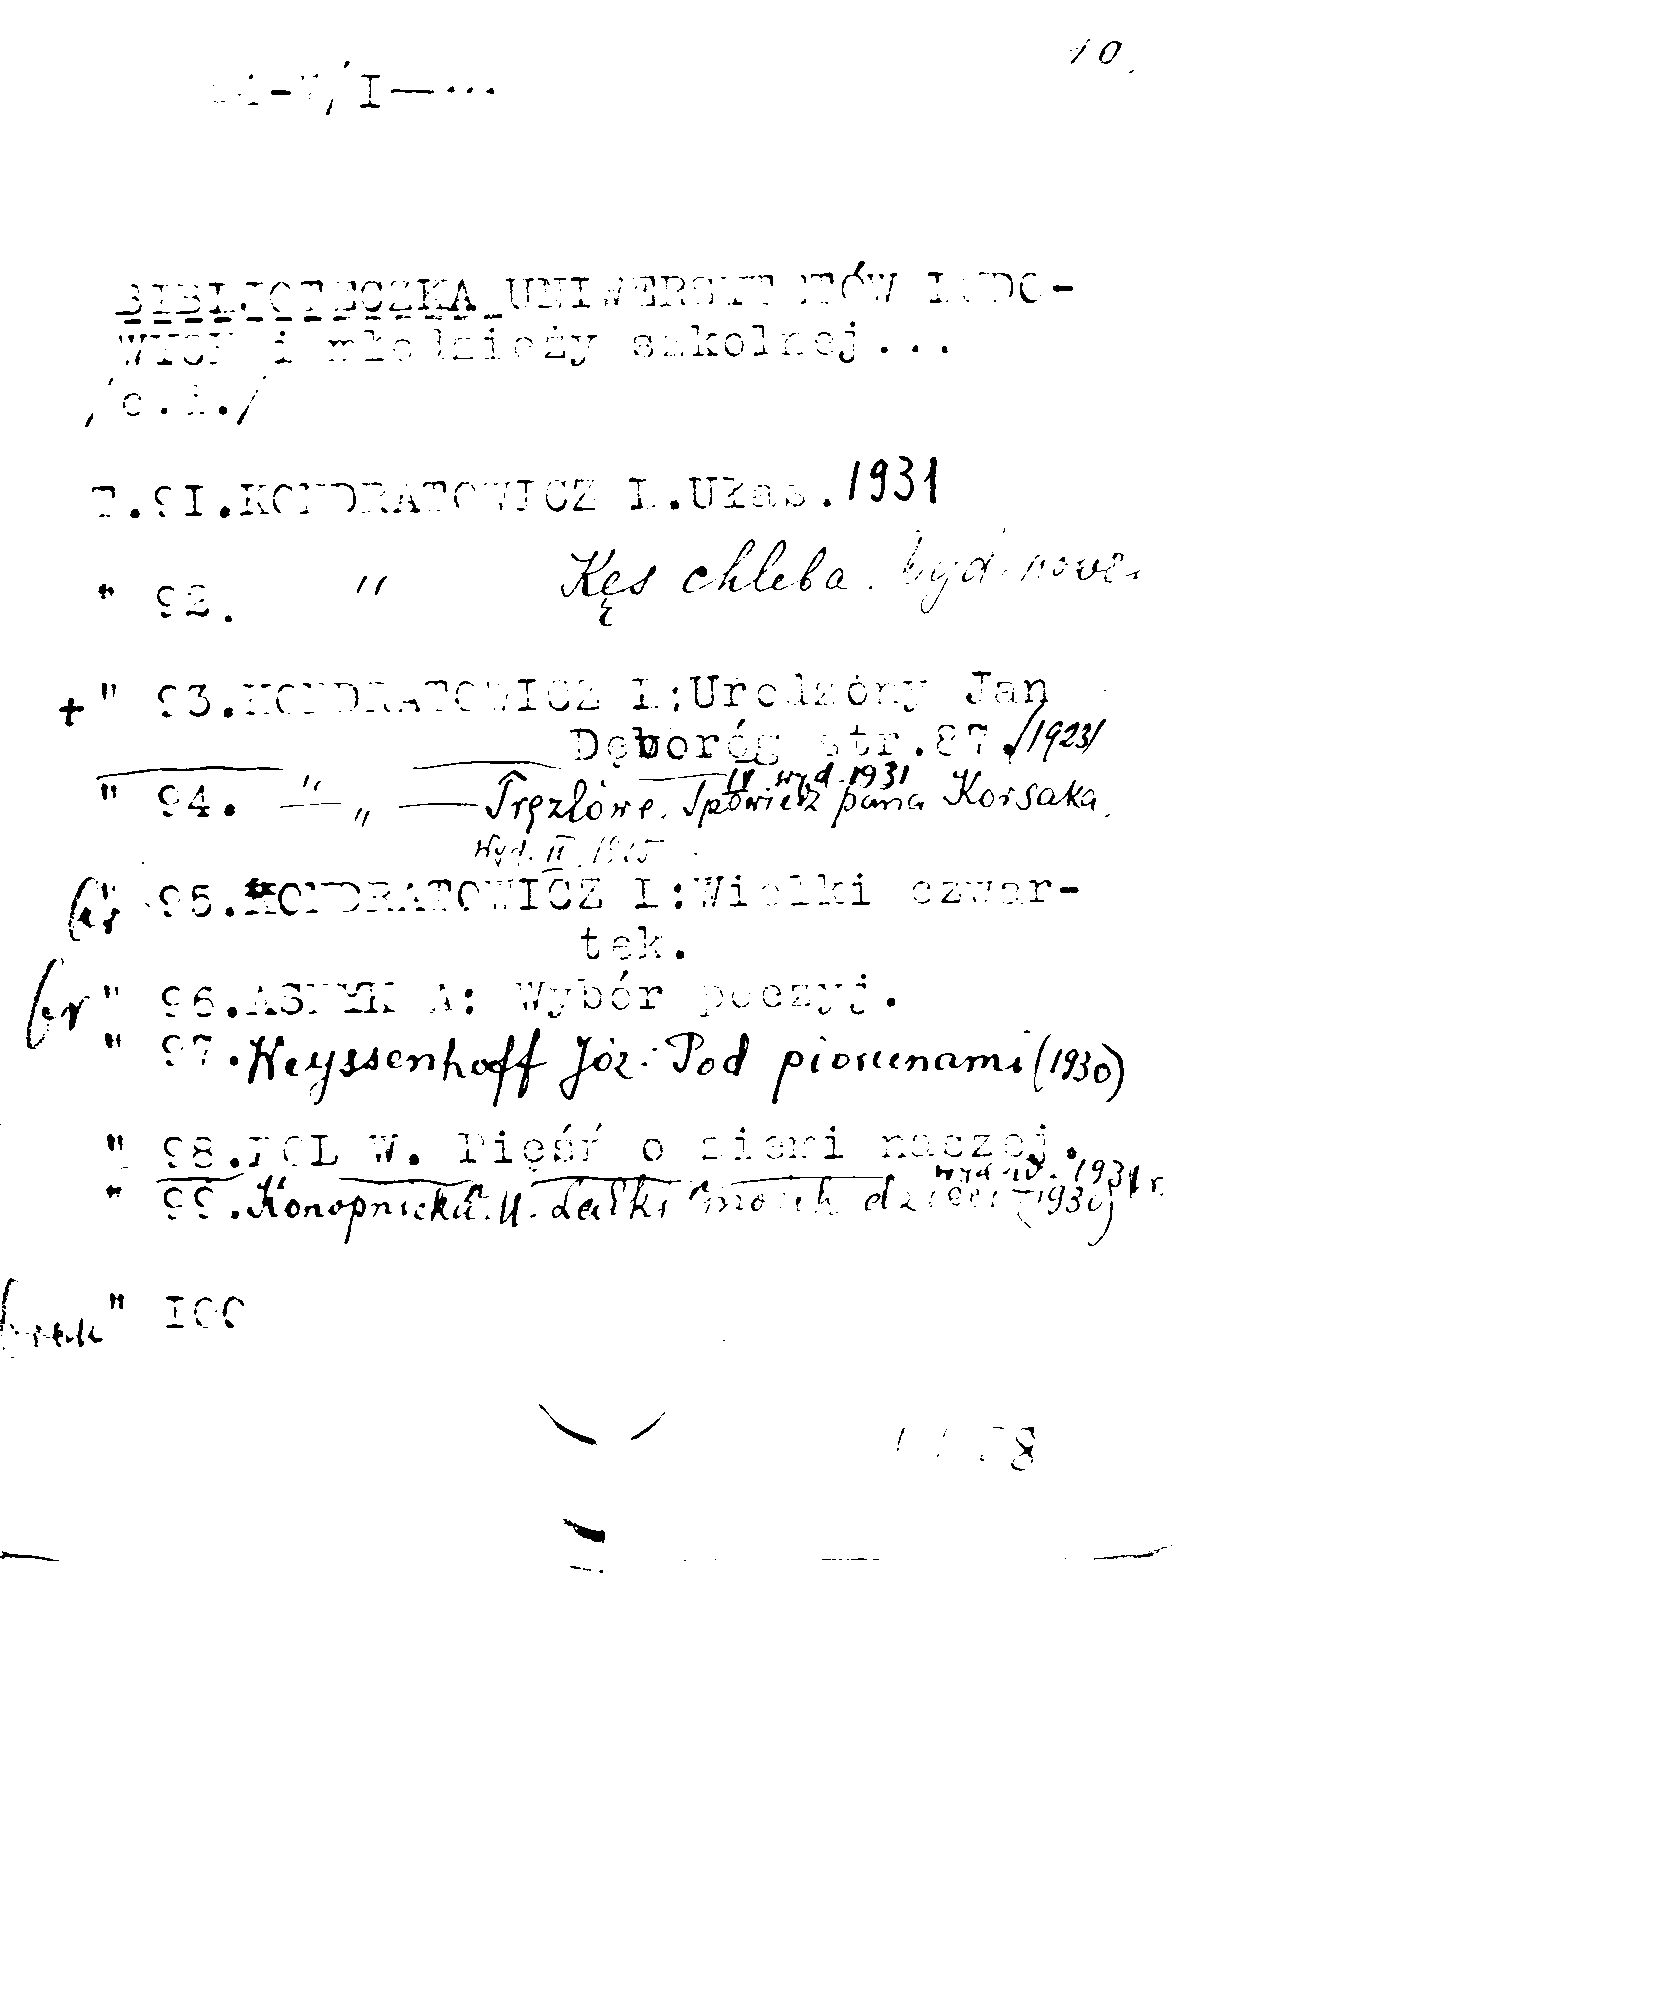 10.
BIBLIOTECZKA UNIWERSYTETÓW LUDO-
WYCH i młodzieży szkolnej...
/c.d./
T.9I.KONDRATOWICZ L.Ułas. 1931
" 92. " Kęs chleba. wyd. nowe.
+ " 93.KONDRATOWICZ L:Urodzony Jan
Dęboróg str.87./1923/
IV wyd. 1931
" 94. — " — Spowiedź pana Korsaka.
Wyd. II.
" 95.KONDRATOWICZ L:Wielki czwar-
tek.
br " 96.ASNYK A: Wybór poezyj.
" 97.Weyssenhoff Józ: Pod piorunami (1930)
" 98.POL W. Pieśń o ziemi naszej.
wyd. IV. 1931 r.
" 99.Konopnicka M. Lalki moich dzieci (1930)
brak " I00